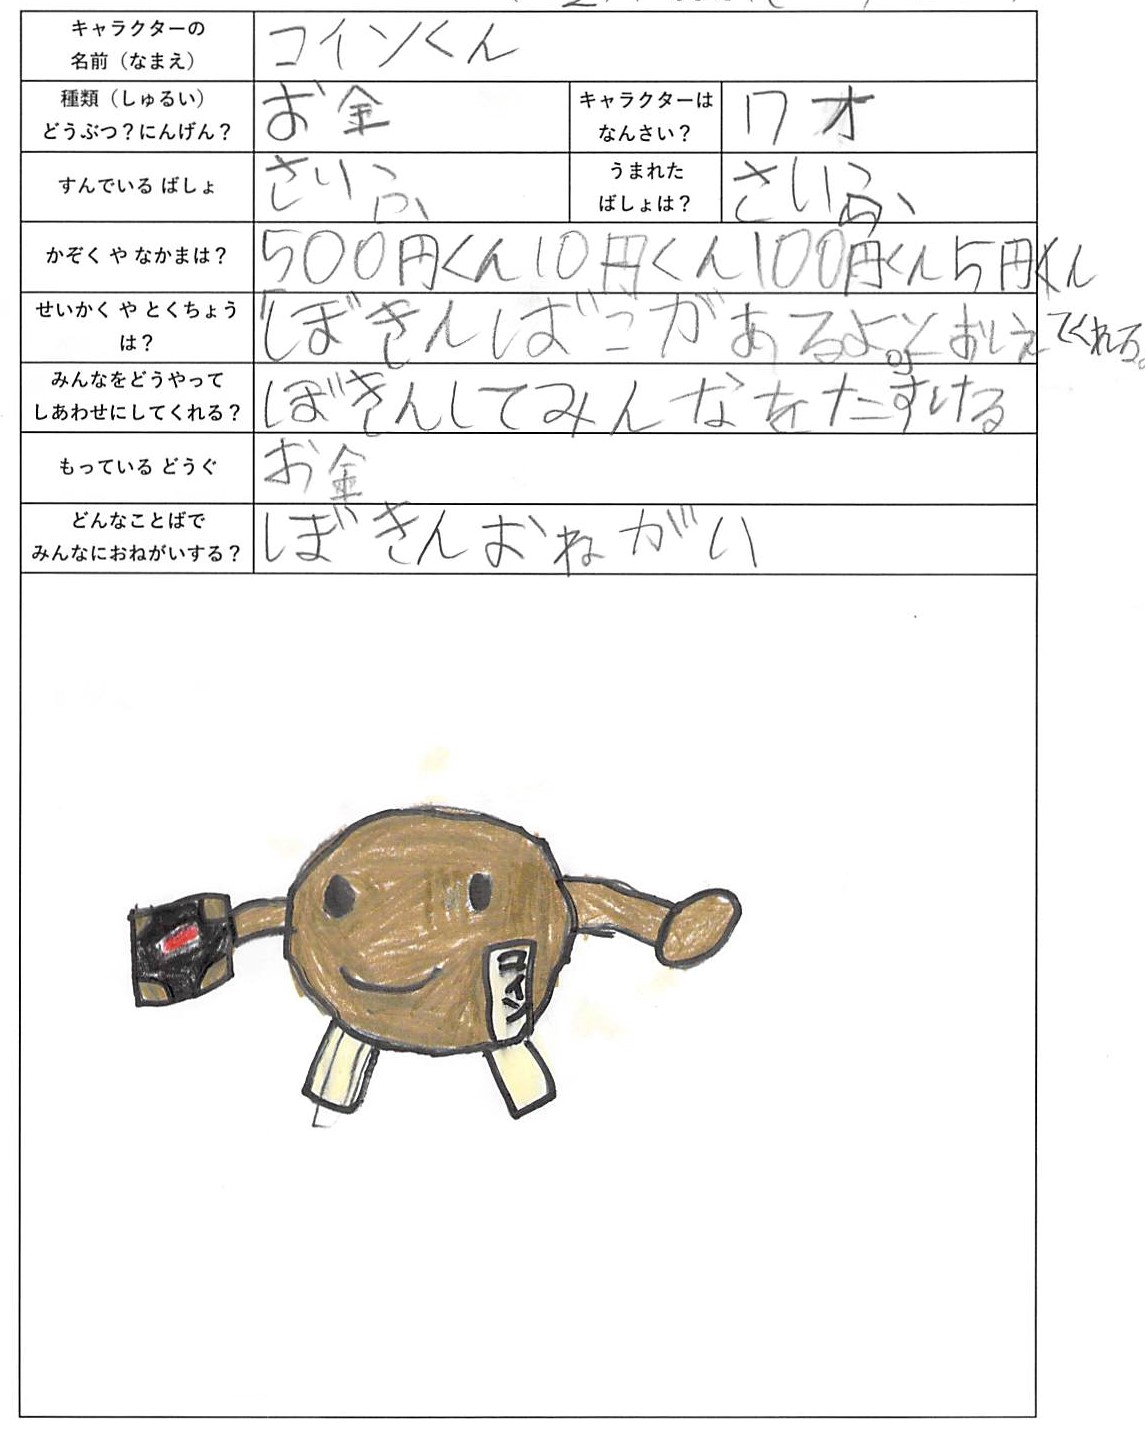 キャラクターの
名前（なまえ）
コインくん
種類（しゅるい）
どうぶつ？にんげん？
お金
キャラクターは
なんさい？
7才
すんでいる ばしょ
さいふ
うまれた
ばしょは？
さいふ
かぞく や なかまは？
500円くん10円くん100円くん5円くん
せいかく や とくちょう
は？
「ぼきんばこがあるよ。」とおしえてくれる。
みんなをどうやって
しあわせにしてくれる？
ぼきんしてみんなをたすける
もっている どうぐ
お金
どんなことばで
みんなにおねがいする？
ぼきんおねがい
コイン